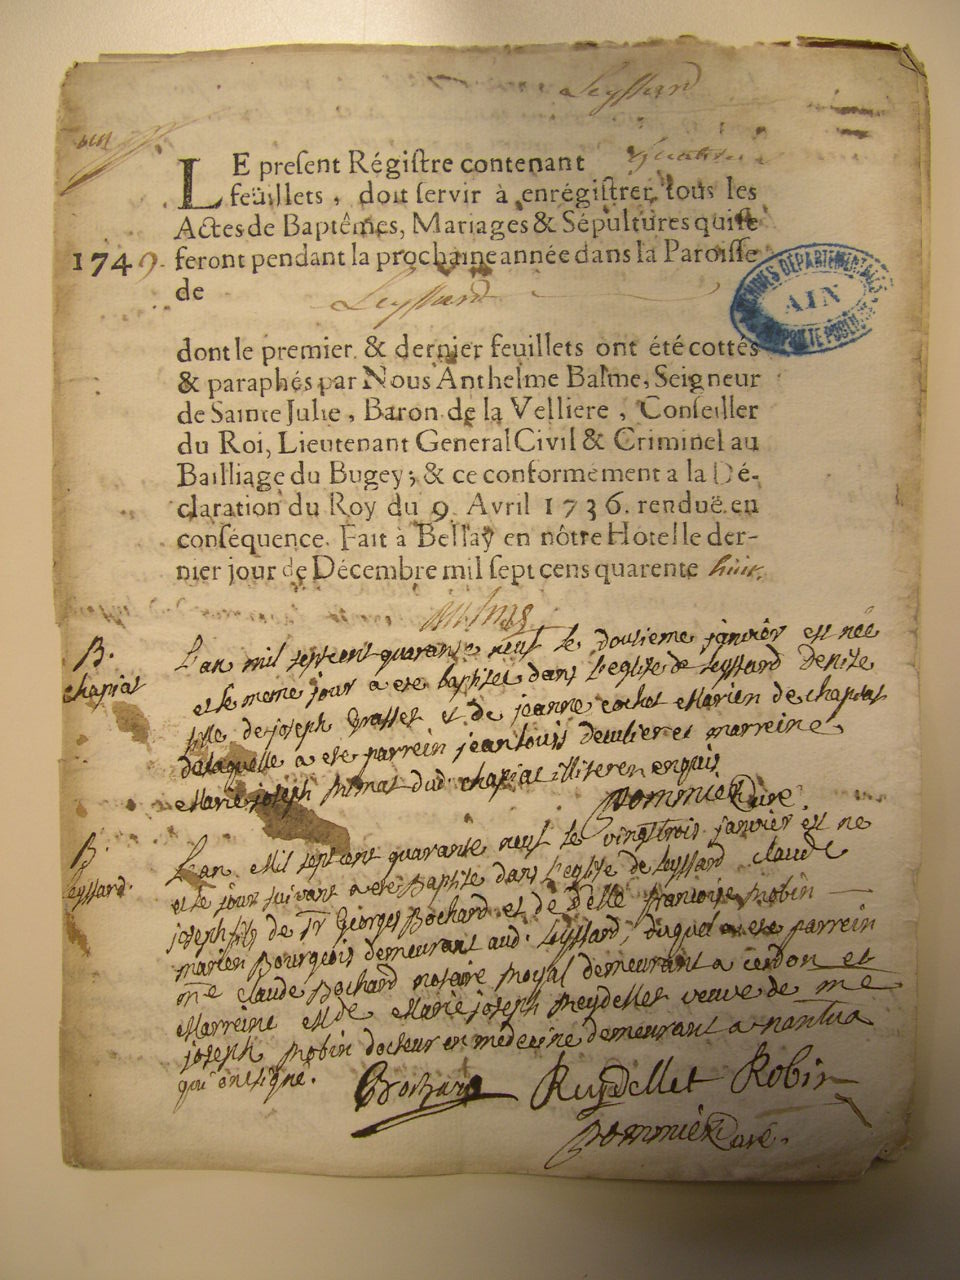 Leyssard
LE preſent Régiſtre contenant
feüillets, doit ſervir à enrégiſtrer tous les
Actes de Baptêmes, Mariages & Sépultures qui ſe
1749. feront pendant la prochaine année dans la Paroiſſe
de Leyssard
ARCHIVES DÉPARTEMENTALES
AIN
dont le premier & dernier feuillets ont été cottés
& paraphés par Nous Anthelme Balme, Seigneur
de Sainte Julie, Baron de la Velliere, Conſeiller
du Roi, Lieutenant General Civil & Criminel au
Bailliage du Bugey; & ce conformément a la Dé-
claration du Roy du 9. Avril 1736. renduë en
conſéquence. Fait à Bellaÿ en nôtre Hotel le der-
nier jour de Décembre mil ſept cens quarente huit.
B.
chapiat
L'an mil septcent quarante neuf le dousieme janvier est née
et le meme jour a ete baptisée dans l'eglise de leyssard denise
fille de joseph grasset et de jeanne cochet mariés de chapiat
de laquelle a ete parrein jean louis et marreine
marie joseph dud. chapiat illiteres enquis
pommier Curé.
B.
leyssard.
L'an mil sept cent quarante neuf le vingt trois janvier est ne
et le jour suivant a ete Baptise dans l'eglise de leyssard claude
joseph fils de Sr Georges Bochard et de Delle francoise Robin
mariés Bourgeois demeurant aud. leyssard, duquel a ete parrein
me claude Bochard notaire Royal demeurant a cerdon et
Marreine Mde Marie joseph Reydellet veuve de me
joseph Robin docteur en medecine demeurant a nantua
qui ont signé.
Bochard Reydellet Robin
pommier Curé.